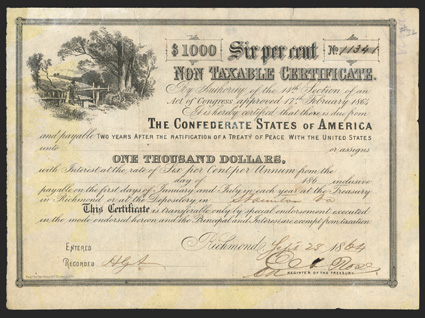 $1000 Six per cent No. 11341
NON TAXABLE CERTIFICATE.
By Authority of the 14th Section of an
Act of Congress approved 17th February 1864
It is hereby certified that there is due from
THE CONFEDERATE STATES OF AMERICA
and payable TWO YEARS AFTER THE RATIFICATION OF A TREATY OF PEACE WITH THE UNITED STATES
unto or assigns
ONE THOUSAND DOLLARS,
with Interest at the rate of Six per Cent per Annum from the
day of 186 inclusive
payable on the first days of January and July in each year at the Treasury
in Richmond or at the Depository in Staunton Va
This Certificate is transferable only by special endorsement executed
in the mode endorsed hereon and the Principal and Interest are exempt from taxation
Richmond Sept 28 1864
ENTERED
RECORDED
REGISTER OF THE TREASURY